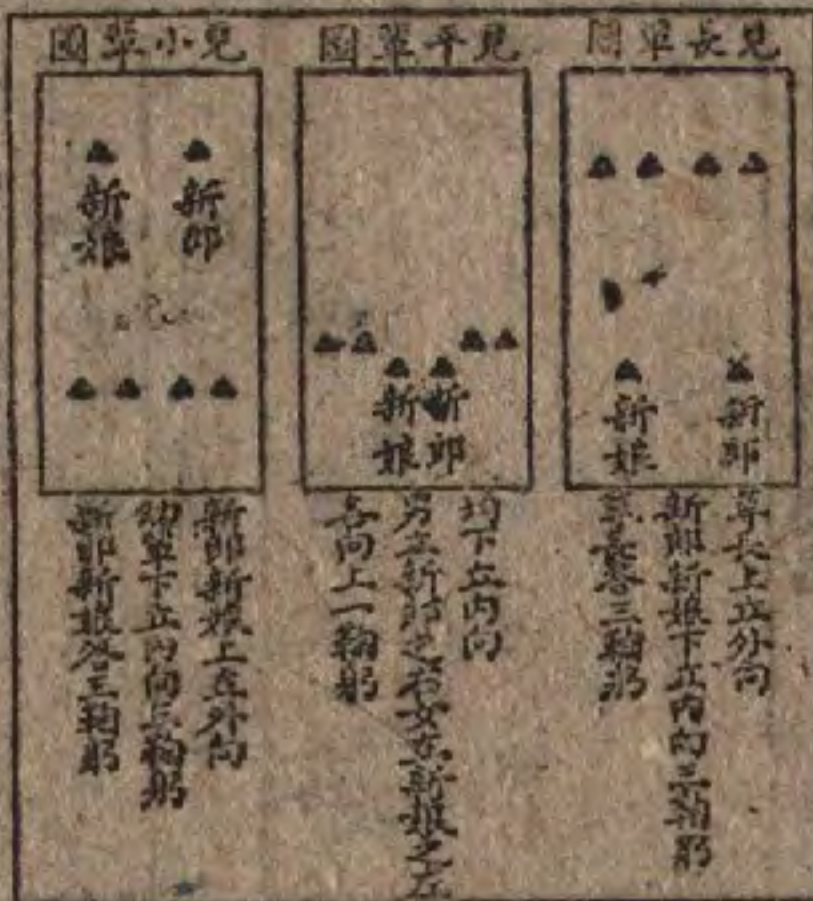 見長輩圖
新郎
新娘
尊長上立外向
新郎新娘下立內向三鞠躬
尊長答三鞠躬
見平輩圖
新郎
新娘
均下立內向
男立新郎之右女立新娘之左
各向上一鞠躬
見小輩圖
新郎
新娘
新郎新娘上立外向
幼輩下立內向三鞠躬
新郎新娘答三鞠躬